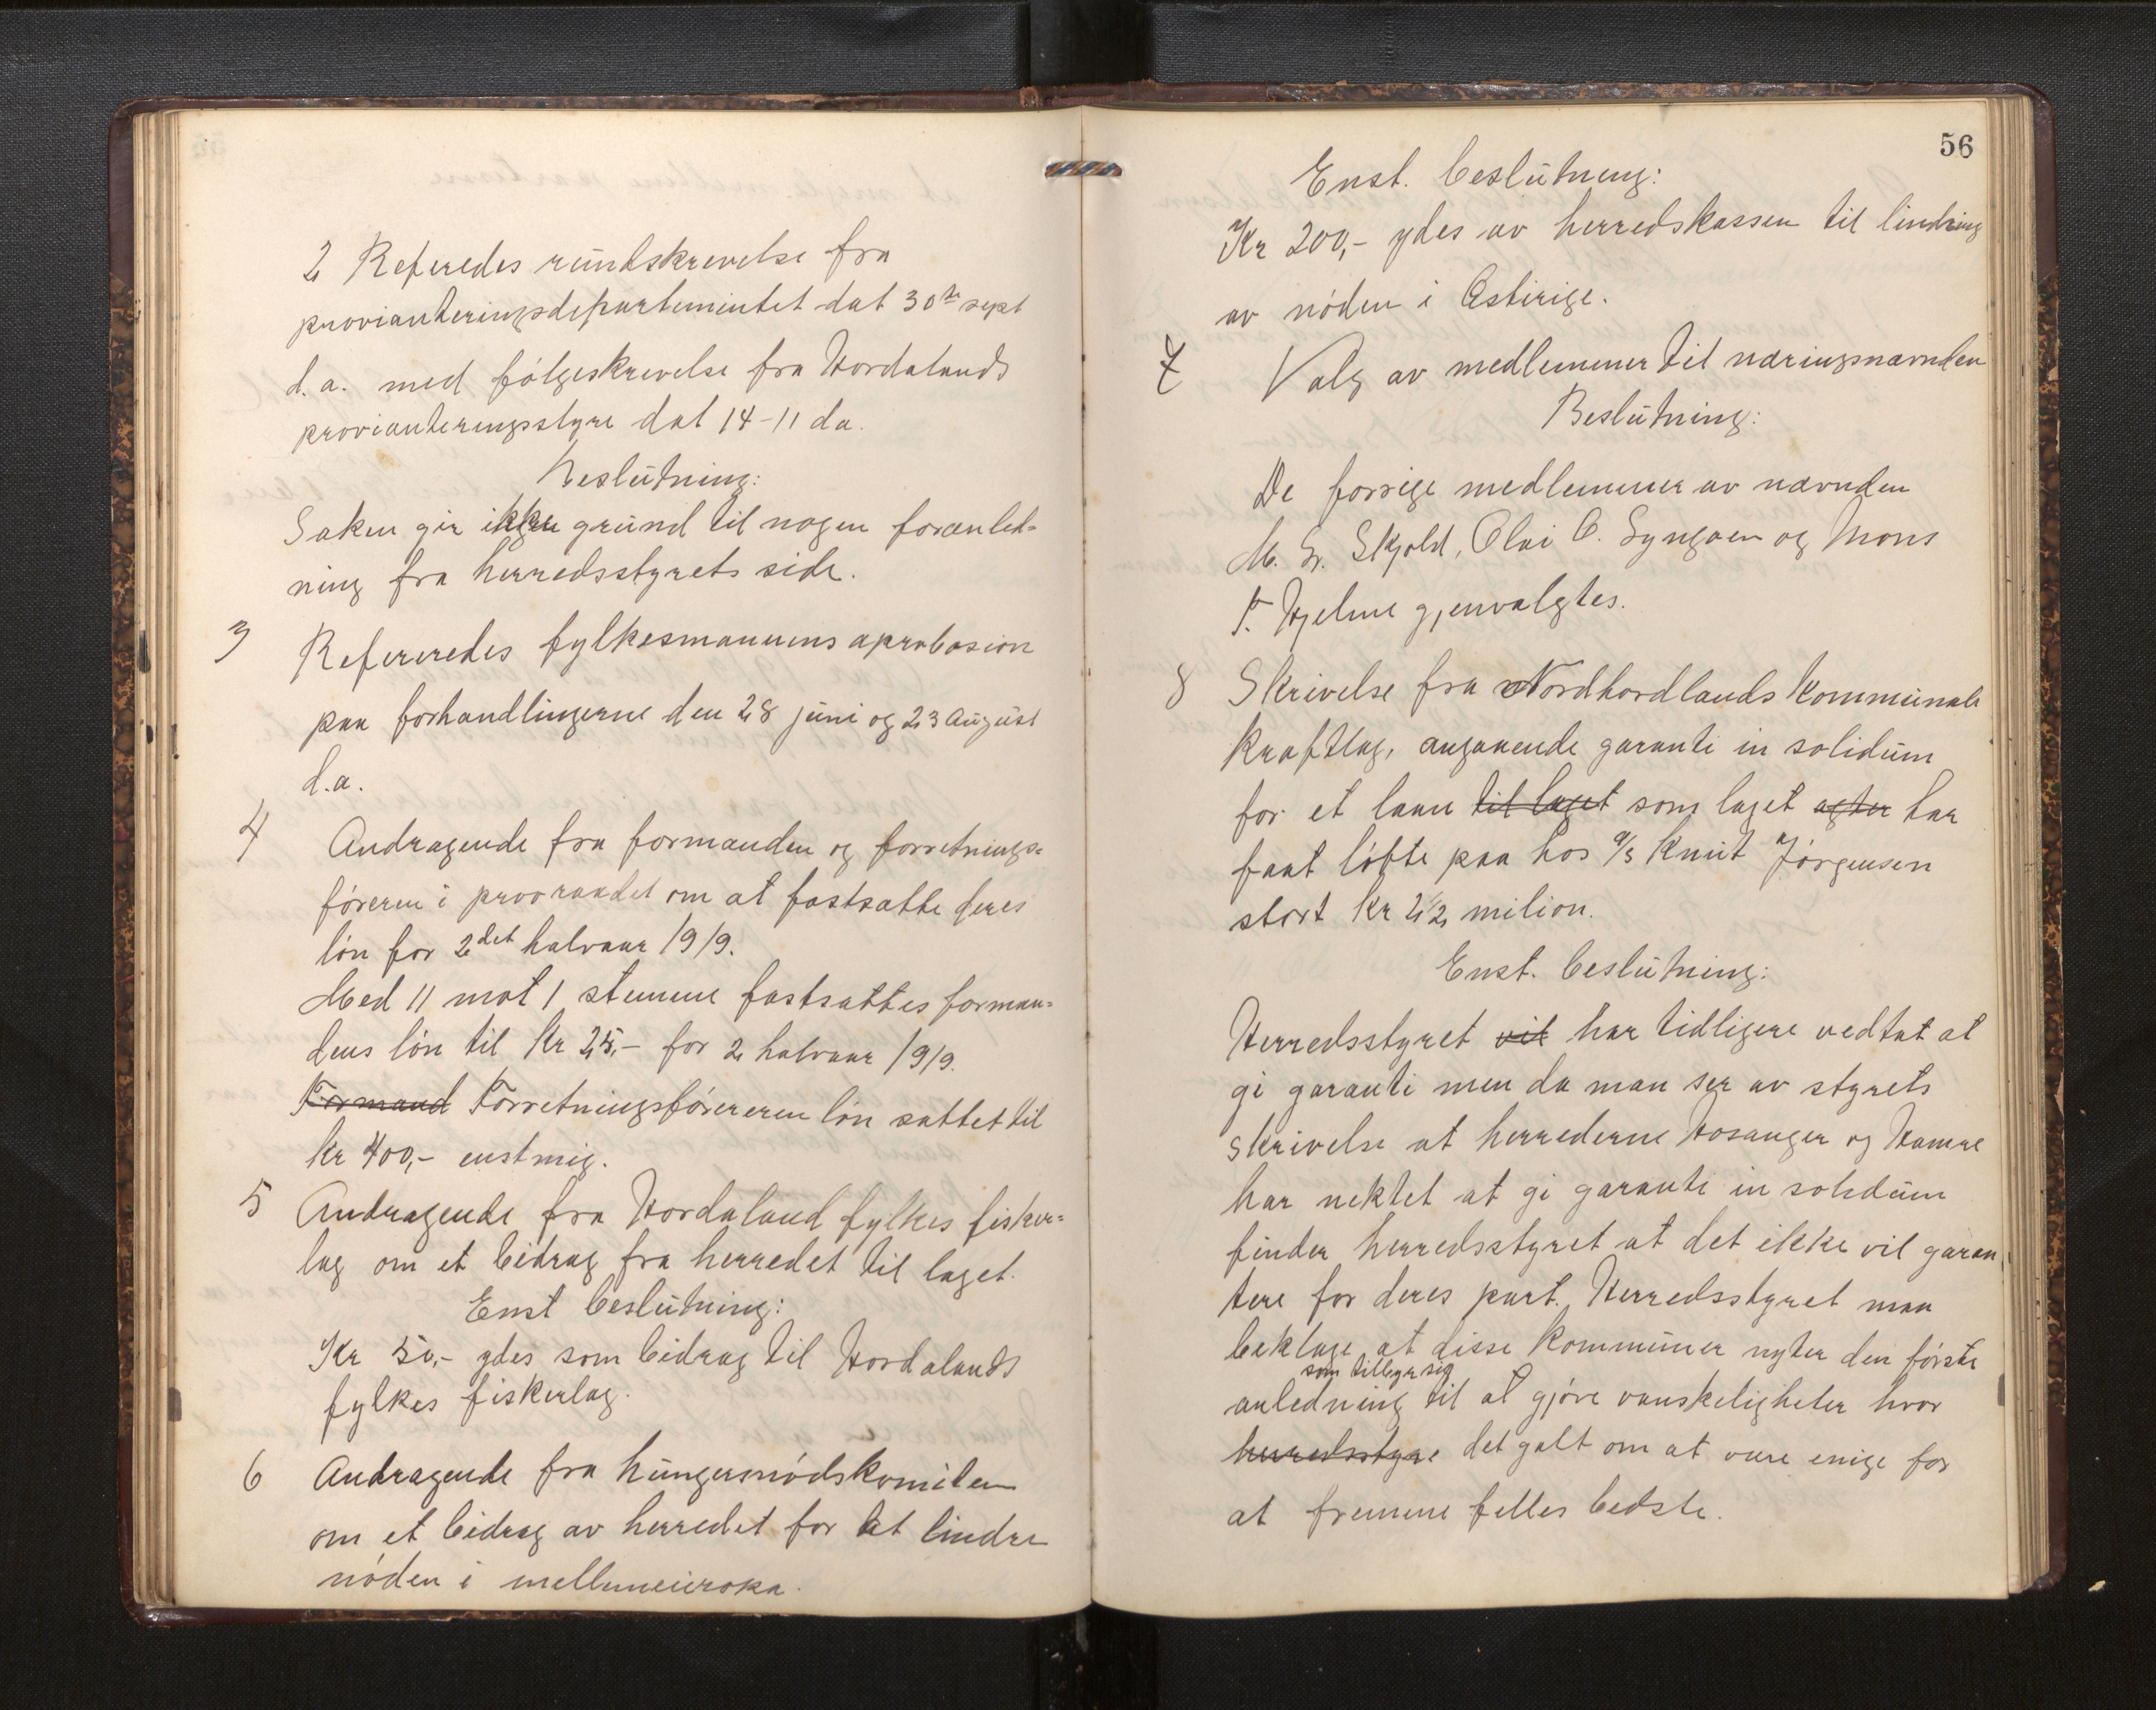 2 Referedes rundskrevelse fra
provianteringsdepartementet dat 30te sept
d.a. med følgeskrevelse fra Hordalands
provianteringsstyre dat 14-11 da.
Beslutning:
Saken gir ikke grund til nogen foranled=
ning fra herredsstyrets side.
3 Refereredes fylkesmannens aprobasion
paa forhandlingerne den 28 juni og 23 August
d.a.
4 Andragende fra formanden og forretnings=
føreren i provraadet om at fastsatte deres
løn for 2det halvaar 1919.
Med 11 mot 1 stemme fastsattes forman=
dens løn til Kr 25,- for 2 halvaar 1919.
Formand Forretningsførereren løn sattet til
kr 400,- enstmig.
5 Andragende fra Hordaland fylkes fisker=
lag om et bidrag fra herredet til laget.
Enst beslutning:
Kr 50,- ydes som bidrag til Hordalands
fylkes fiskerlag.
6 Andragende fra hungersnødskomiteen
om et bidrag av herredet for at lindre
nøden i mellemeuropa.
56
Enst. beslutning:
Kr 200,- ydes av herredskassen til lindring
av nøden i Østirige.
7 Valg av medlemmer til næringsnævnden
Beslutning:
De forrige medlemmer av nævnden
M. G. Skjold, Olai O. Syngoen og Mons
T. Hjelme gjenvalgtes.
8 Skrivelse fra Nordhordlands Kommunale
Kraftlag, angaaende garanti in solidum
for et laan til laget som laget agter har
faat løfte paa hos a/s Knut Jørgensen
stort Kr 2 1/2 milion.
Enst. beslutning:
Herredsstyret vil har tidligere vedtat at
gi garanti men da man ser av styrets
skrivelse at herrederne Hosanger og Hamre
har nektet at gi garanti in solidum
finder herredsstyret at det ikke vil garan
tere for deres part. Herredsstyret maa
beklage at disse kommuner nyter den første
som tilbyr sig
anledning til at gjøre vanskeligheter hvor
herredsstyre det galt om at være enige for
at fremme felles bedste.